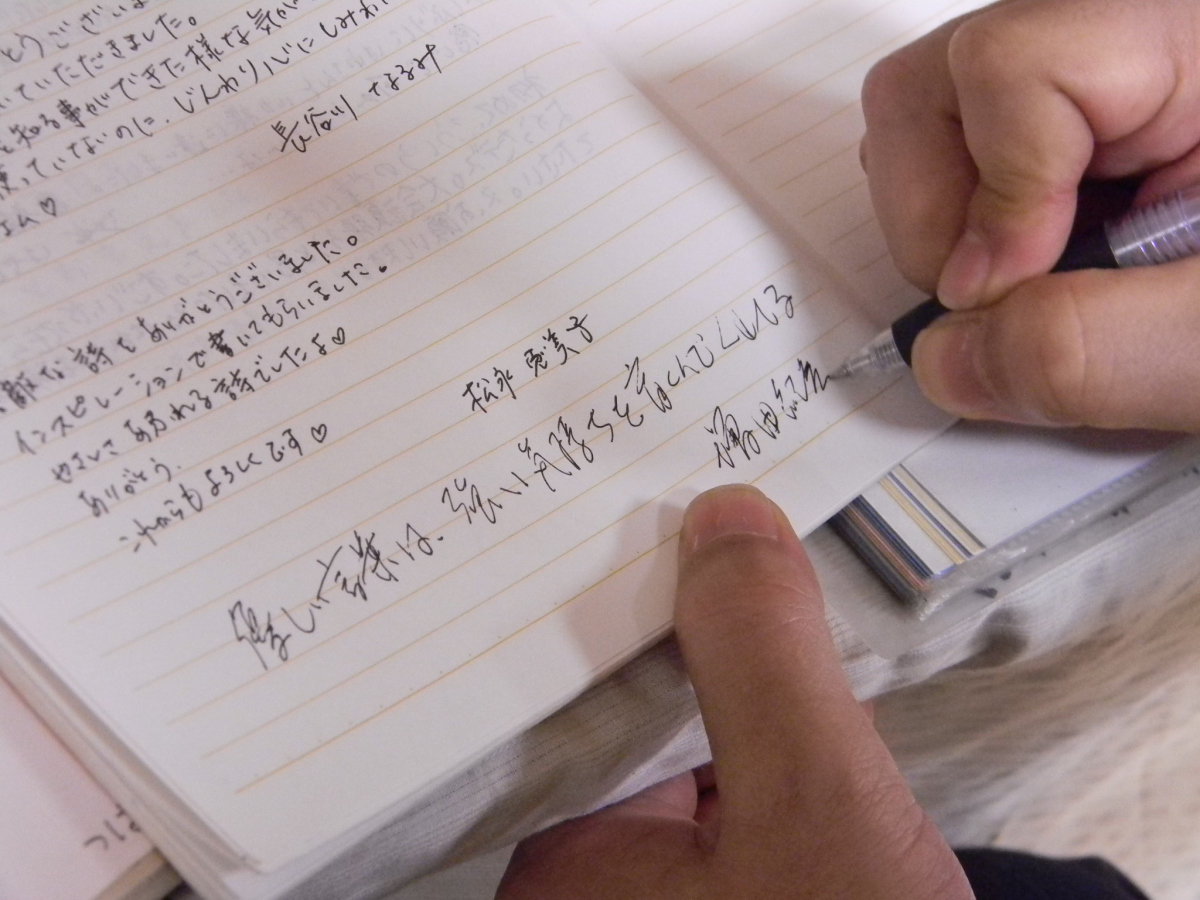 とうござい
いていただきました。
と知る事ができた様な気が
使っていないのに、じんわり心にしみわ
長谷川 なるみ
敵な詩をありがとうございました。
インスピレーションで書いてもらいました。
やさしさあふれる詩でしたよ♡
ありがとう。
これからもよろしくです♡
松永 恵美子
優しい言葉は、強い気持ちを育んでくれる
田